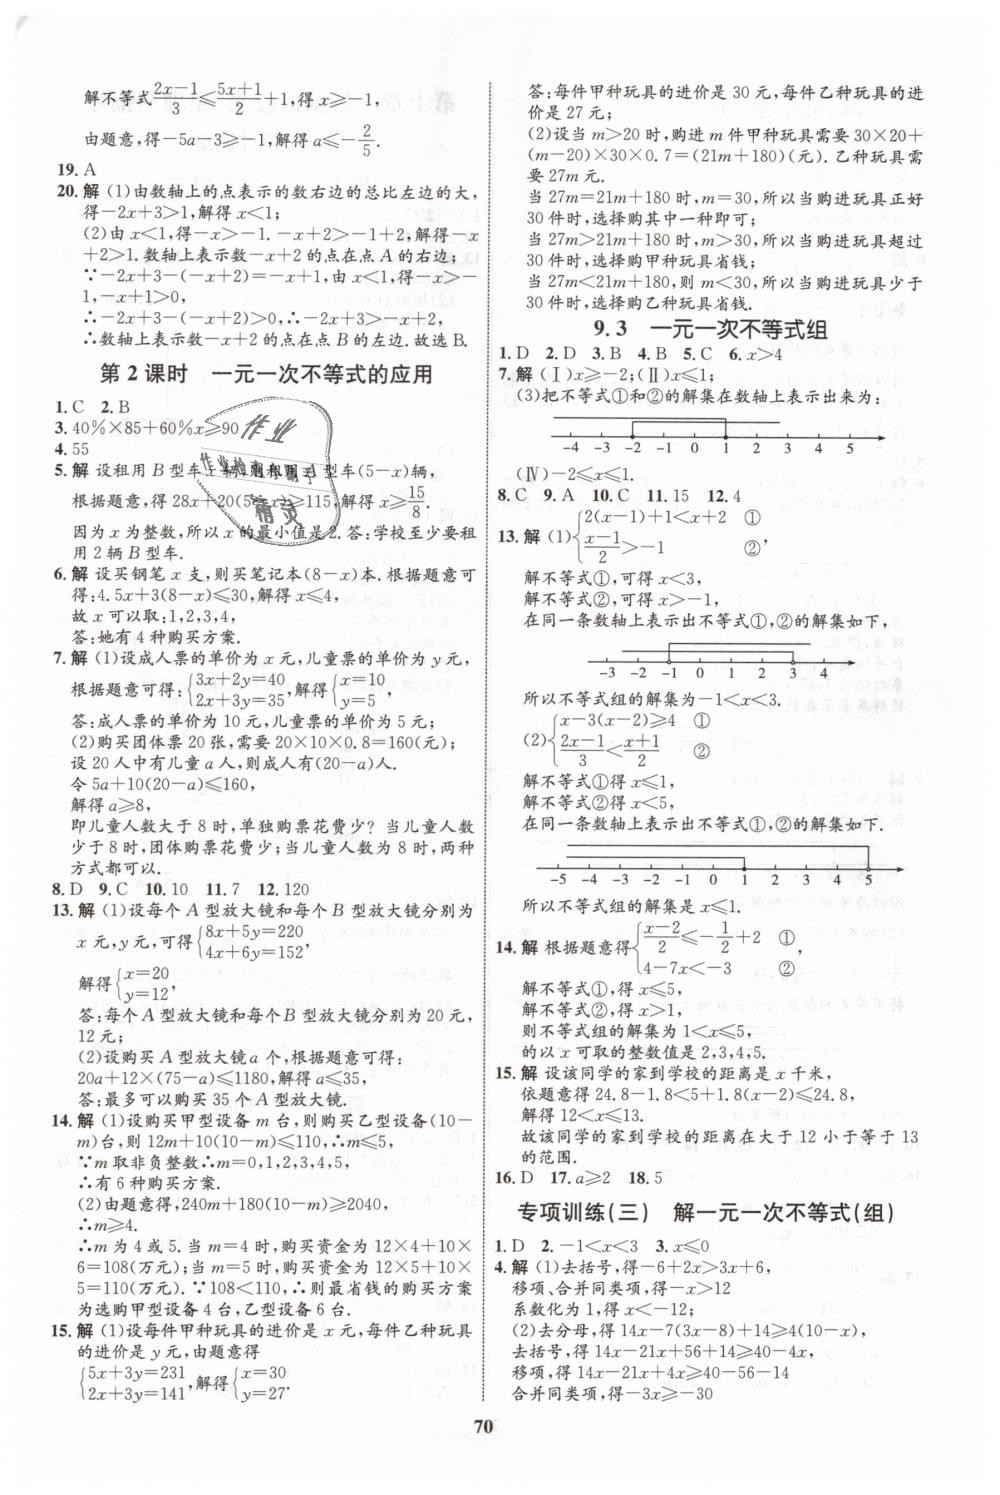 解不等式(2x-1)/3≤(5x+1)/2+1,得x≥-1,
由题意,得-5a-3≥-1,解得a≤-2/5.
19. A
20. 解 (1)由数轴上的点表示的数右边的总比左边的大,
得-2x+3>1,解得x<1;
(2)由x<1,得-x>-1.-x+2>-1+2,解得-x
+2>1.数轴上表示数-x+2的点在点A的右边;
∵-2x+3-(-x+2)=-x+1,由x<1,得-x>-
1,-x+1>0,
∴-2x+3-(-x+2)>0,∴-2x+3>-x+2,
∴数轴上表示数-x+2的点在点B的左边.故选B.
第2课时 一元一次不等式的应用
1. C 2. B
3. 40%×85+60%x≥90
4. 55
5. 解 设租用B型车x辆,则租用A型车(5-x)辆,
根据题意,得28x+20(5-x)≥115,解得x≥15/8.
因为x为整数,所以x的最小值是2.答:学校至少要租
用2辆B型车.
6. 解 设买钢笔x支,则买笔记本(8-x)本.根据题意可
得:4.5x+3(8-x)≤30,解得x≤4,
故x可以取:1,2,3,4,
答:她有4种购买方案.
7. 解 (1)设成人票的单价为x元,儿童票的单价为y元,
根据题意可得:{3x+2y=40 2x+3y=35,解得{x=10, y=5
答:成人票的单价为10元,儿童票的单价为5元;
(2)购买团体票20张,需要20×10×0.8=160(元);
设20人中有儿童a人,则成人有(20-a)人.
令5a+10(20-a)≤160,
解得a≥8,
即儿童人数大于8时,单独购票花费少? 当儿童人数
少于8时,团体购票花费少;当儿童人数为8时,两种
方式都可以.
8. D 9. C 10. 10 11. 7 12. 120
13. 解 (1)设每个A型放大镜和每个B型放大镜分别为
x元,y元,可得{8x+5y=220 4x+6y=152,
解得{x=20 y=12,
答:每个A型放大镜和每个B型放大镜分别为20元,
12元;
(2)设购买A型放大镜a个,根据题意可得:
20a+12×(75-a)≤1180,解得a≤35,
答:最多可以购买35个A型放大镜.
14. 解 (1)设购买甲型设备m台,则购买乙型设备(10-
m)台,则12m+10(10-m)≤110,∴m≤5,
∵m取非负整数∴m=0,1,2,3,4,5,
∴有6种购买方案.
(2)由题意得,240m+180(10-m)≥2040,
∴m≥4.
∴m为4或5.当m=4时,购买资金为12×4+10×
6=108(万元);当m=5时,购买资金为12×5+10×
5=110(万元).∵108<110,∴最省钱的购买方案
为选购甲型设备4台,乙型设备6台.
15. 解 (1)设每件甲种玩具的进价是x元,每件乙种玩具
的进价是y元,由题意得
{5x+3y=231 2x+3y=141,解得{x=30 y=27.
答:每件甲种玩具的进价是30元,每件乙种玩具的进
价是27元;
(2)设当m>20时,购进m件甲种玩具需要30×20+
(m-20)×30×0.7=(21m+180)(元).乙种玩具需
要27m元.
当27m=21m+180时,m=30,所以当购进玩具正好
30件时,选择购其中一种即可;
当27m>21m+180时,m>30,所以当购进玩具超过
30件时,选择购甲种玩具省钱;
当27m<21m+180时,则m<30,所以当购进玩具少于
30件时,选择购乙种玩具省钱.
9.3 一元一次不等式组
1. D 2. D 3. B 4. B 5. C 6. x>4
7. 解 (Ⅰ)x≥-2;(Ⅱ)x≤1;
(3)把不等式①和②的解集在数轴上表示出来为:
-4 -3 -2 -1 0 1 2 3 4 5
(Ⅳ)-2≤x≤1.
8. C 9. A 10. C 11. 15 12. 4
13. 解 (1){2(x-1)+1<x+2 ① (x-1)/2>-1 ②,
解不等式①,可得x<3,
解不等式②,可得x>-1,
在同一条数轴上表示出不等式①,②的解集如下,
-3 -2 -1 0 1 2 3 4
所以不等式组的解集为-1<x<3.
(2){x-3(x-2)≥4 ① (2x-1)/3<(x+1)/2 ②
解不等式①得x≤1,
解不等式②得x<5,
在同一条数轴上表示出不等式①,②的解集如下.
-5 -4 -3 -2 -1 0 1 2 3 4 5
所以不等式组的解集是x≤1.
14. 解 根据题意得{(x-2)/2≤-1/2+2 ①, 4-7x<-3 ②
解不等式①,得x≤5,
解不等式②,得x>1,
则不等式组的解集为1<x≤5,
的以x可取的整数值是2,3,4,5.
15. 解 设该同学的家到学校的距离是x千米,
依题意得24.8-1.8<5+1.8(x-2)≤24.8,
解得12<x≤13.
故该同学的家到学校的距离在大于12小于等于13
的范围.
16. D 17. a≥2 18. 5
专项训练(三) 解一元一次不等式(组)
1. D 2. -1<x<3 3. x≤0
4. 解 (1)去括号,得-6+2x>3x+6,
移项、合并同类项,得-x>12
系数化为1,得x<-12;
(2)去分母,得14x-7(3x-8)+14≥4(10-x)
去括号,得14x-21x+56+14≥40-4x,
移项,得14x-21x+4x≥40-56-14
合并同类项,得-3x≥-30
70